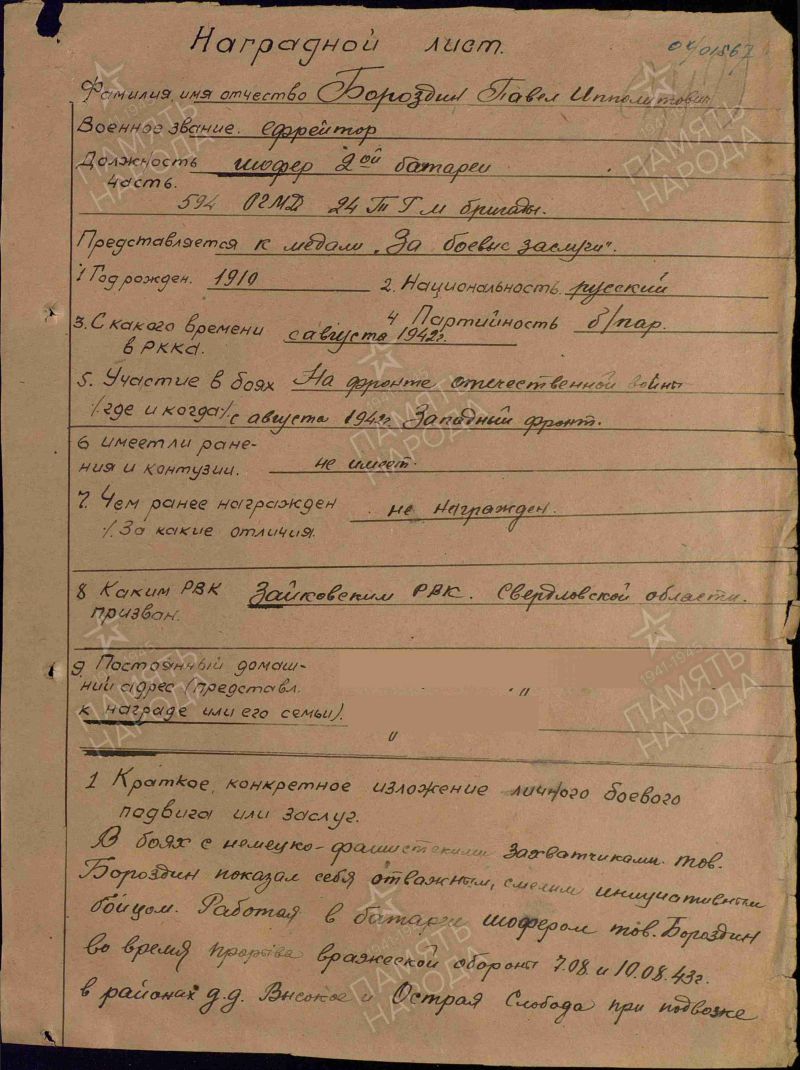 Наградной лист.
Фамилия имя отчество Бороздин Павел Ипполитович
Военное звание. ефрейтор
Должность шофер 2ой батареи
часть.
594 ОГМД 24 Т Г М бригады.
Представляется к медали „За боевые заслуги".
1 Год рожден. 1910 2. Национальность русский
3. С какого времени в РККА. с августа 1942г. 4 Партийность б/пар.
5. Участие в боях На фронте отечественной войны
/где и когда/. с августа 1942г Западный фронт.
6 имеет ли ране-
ния и контузии. не имеет.
7. Чем ранее награжден не награжден.
/. За какие отличия.
8 Каким РВК Зайковским РВК. Свердловской области.
призван.
9. Постоянный домаш-
ний адрес (представл. "
к награде или его семьи). "
1 Краткое, конкретное изложение личного боевого
подвига или заслуг.
В боях с немецко-фашистскими захватчиками тов.
Бороздин показал себя отважным, смелым инициативным
бойцом. Работая в батарее шофером тов. Бороздин
во время прорыва вражеской обороны 7.08 и 10.08.43г.
в районах д.д. Высокое и Острая Слобода при подвозке
1941-1945
ПАМЯТЬ
НАРОДА